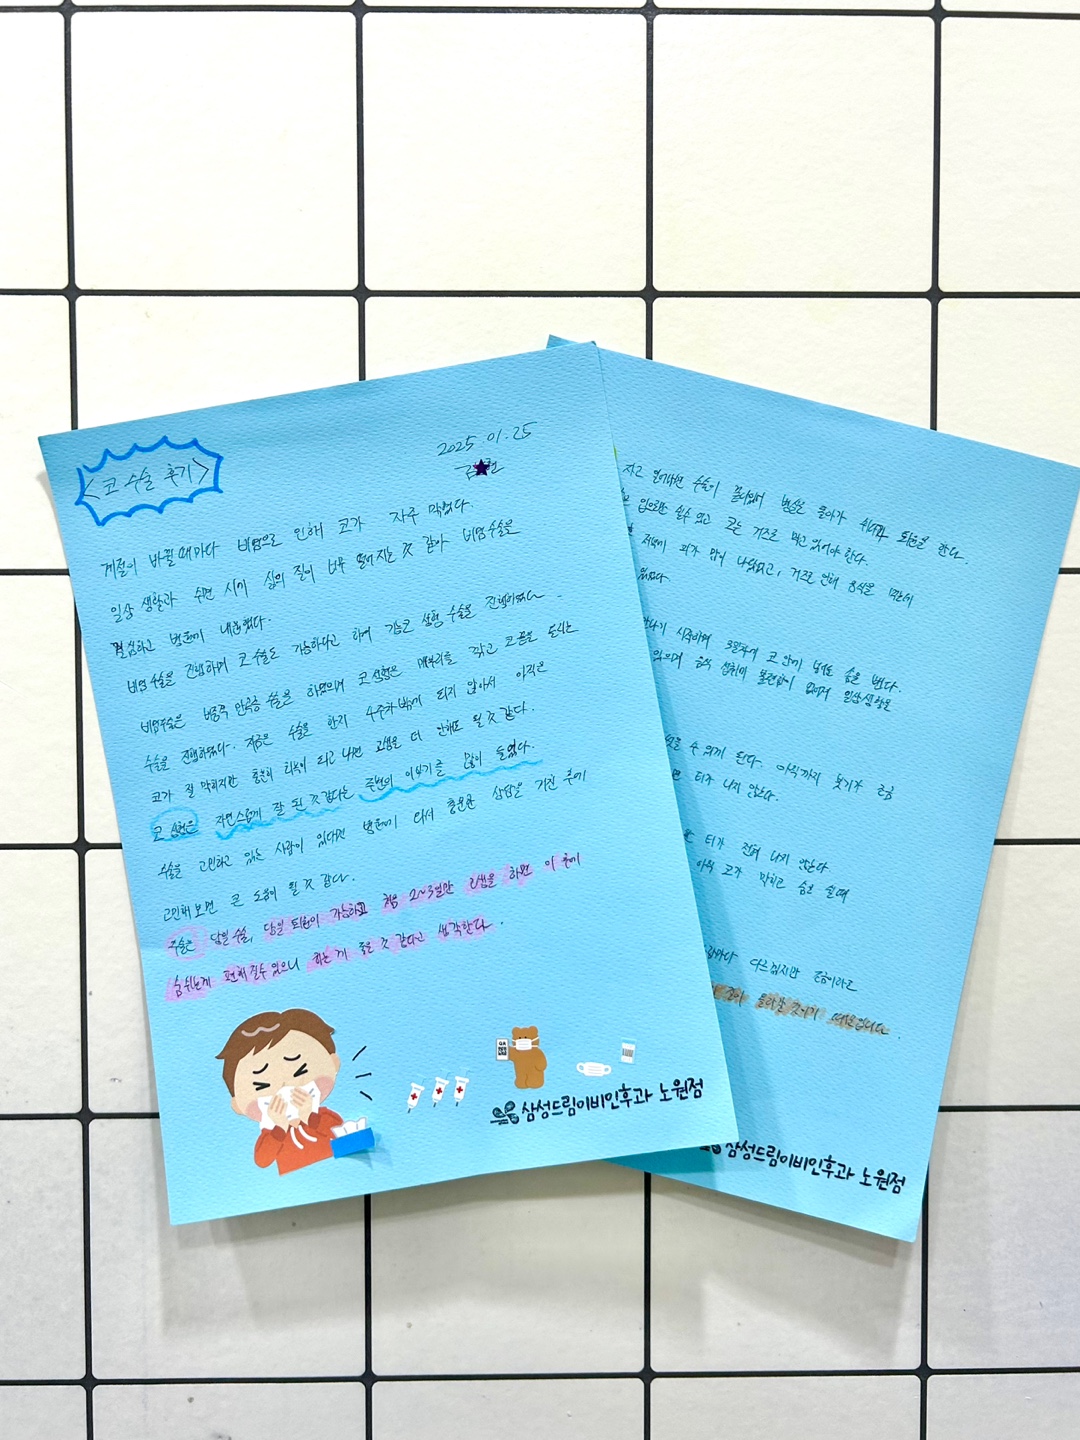 <코 수술 후기>
2025.01.25
김★현
계절이 바뀔때마다 비염으로 인해 코가 자주 막혔다.
일상 생활과 수면 시에 삶의 질이 너무 떨어지는 것 같아 비염수술을
결심하고 병원에 내원했다.
비염수술을 진행하며 코 수술도 가능하다고 하여 기능코 성형 수술을 진행하였다.
비염수술은 비중격 만곡증 수술을 하였으며 코 성형은 매부리를 깎고 코끝을 올리는
수술을 진행하였다. 지금은 수술을 한지 4주차밖에 되지 않아서 아직은
코가 잘 막히지만 충분히 회복이 되고 나면 고생을 더 안해도 될 것 같다.
코 성형은 자연스럽게 잘 된 것 같다는 주변의 이야기를 많이 들었다.
수술을 고민하고 있는 사람이 있다면 병원에 와서 충분한 상담을 가진 후에
고민해 보면 큰 도움이 될 것 같다.
수술은 당일 수술, 당일 퇴원이 가능하고 처음 2~3일만 고생을 하면 이 후에
숨쉬는게 편해질수 있으니 하는 게 좋을 것 같다고 생각한다.
삼성드림이비인후과 노원점
자고 일어나면 수술이 끝나있어 병실로 돌아가 쉬다가 퇴원을 한다.
입으로만 쉴수 있고 코는 거즈로 막고 있어야 한다.
저녁에 피가 많이 나왔었고, 거즈로 인해 음식을 먹는데
있었다.
시작하며 3일차에 코 안에 넣어둔 솜을 뺀다.
있으며 음식 섭취에 불편함이 없어져 일상생활을
수 있게 된다. 아직까지 붓기가 조금
티가 나지 않는다.
티가 전혀 나지 않는다.
아직 코가 막히고 숨쉴때
다르겠지만 조금이라도
때문입니다.
삼성드림이비인후과 노원점